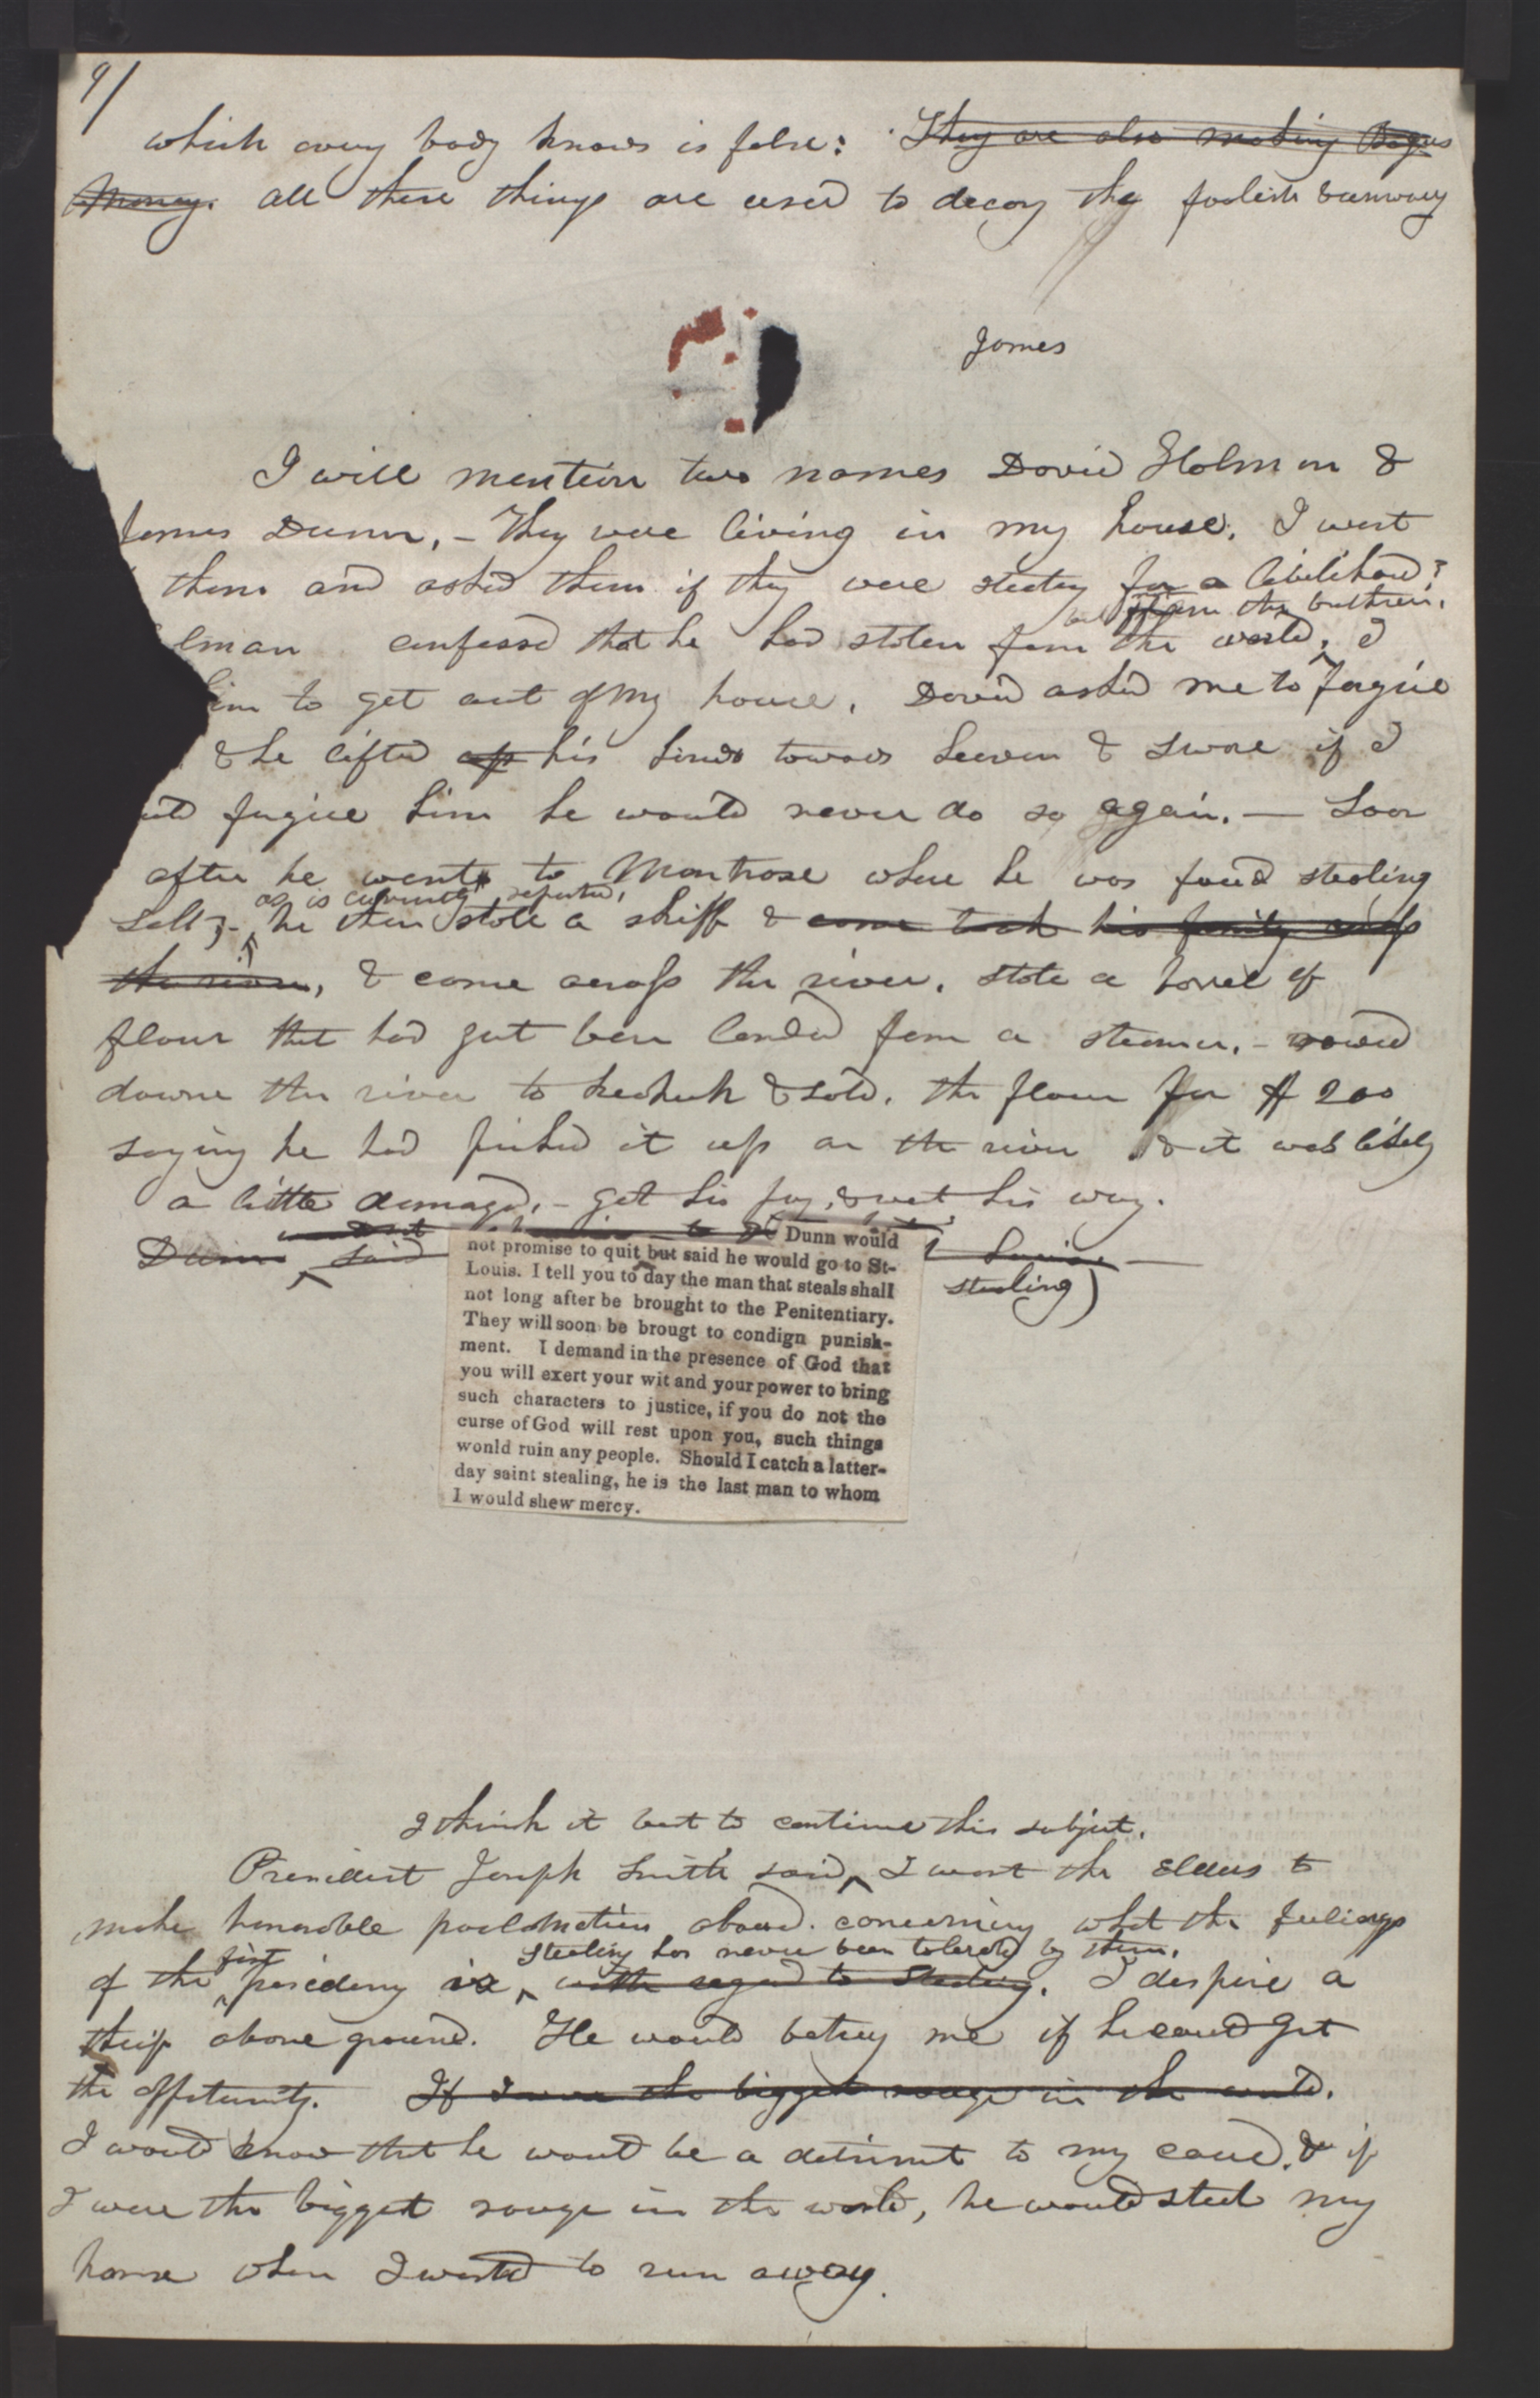 9/
which every body knows is false: They are also making Bogus
Money. all these things are used to decoy the foolish & unwary
James
I will mention two names David Holman &
James Dunn, - They were living in my house. I went
them and asked them if they were stealing for a livelihood?
but from the brethren.
lman confessed that he had stolen from the world, I
him to get out of my house. David asked me to forgive
& he lifted up his hands towards heaven & swore if I
uld forgive him he would never do so again. — Soon
after he went to Montrose where he was found stealing
as is currently reported,
salt, - he then stole a skiff & came took his family across
the river, & came across the river. stole a barrel of
flour that had just been landed from a steamer. - rowed
down the river to Keokuk & sold. the flour for $ 200
saying he had picked it up on the river & it was likely
a little damaged. - got his pay, & went his way.
Dunn said
Dunn would
not promise to quit but said he would go to St-
stealing)
Louis. I tell you to day the man that steals shall
not long after be brought to the Penitentiary.
They will soon be brougt to condign punish-
ment. I demand in the presence of God that
you will exert your wit and your power to bring
such characters to justice, if you do not the
curse of God will rest upon you, such things
wonld ruin any people. Should I catch a latter-
day saint stealing, he is the last man to whom
I would shew mercy.
I think it best to continue this subject.
President Joseph Smith said, I want the Elders to
make honorable proclamation abroad. concerning what the feelings
first stealing has never been tolerated by them.
of the presidency is, with regard to Stealing. I despise a
thief above ground. He would betray me if he could get
the opportunity. If I were the biggest rouge in the world.
I would know that he would be a detriment to my cause. & if
I were the biggest rouge in the world, he would steal my
horse when I wanted to run away.